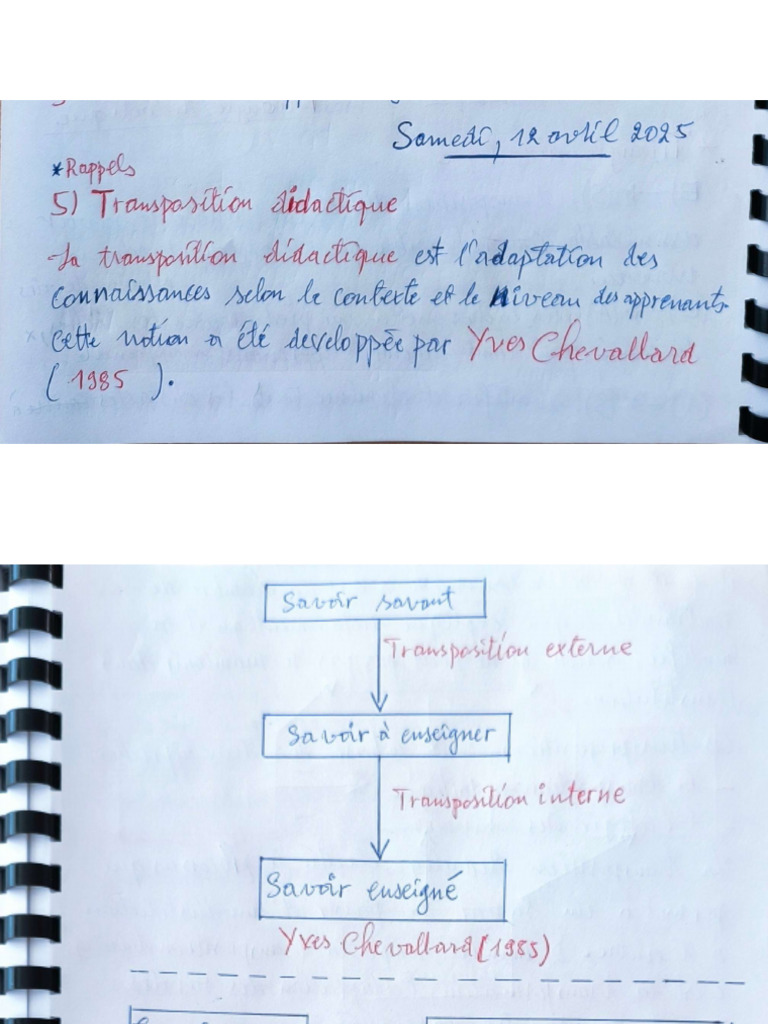 Samedi, 12 avril 2025
*Rappels
5) Transposition didactique
-La transposition didactique est l'adaptation des
connaissances selon le contexte et le niveau des apprenants.
Cette notion a été developpée par Yves Chevallard
(1985).
Savoir savant
Transposition externe
Savoir à enseigner
Transposition interne
Savoir enseigné
Yves Chevallard (1985)